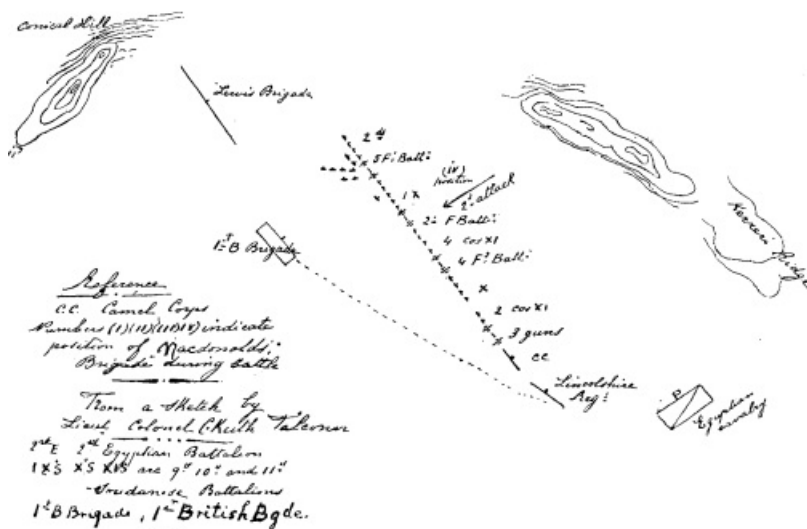 Conical Hill
Lewis Brigade
2nd E
5 Fd Batty
IX
(IV) position
2nd attack
2 Fd Batty
4 cos XI
4 Fd Batty
X
2 cos XI
3 guns
CC
Lincolnshire Regt
Kerreri Ridge
Egyptian cavalry
1st B Brigade
Reference
C.C. Camel Corps
Numbers (I)(II)(III)(IV) indicate
position of Macdonalds
Brigade during battle
From a sketch by
Lieut Colonel C. Keith Falconer
2nd E 2nd Egyptian Battalion
IXS XS XIS are 9th 10th and 11th
Soudanese Battalions
1st B Brigade, 1st British Bgde.